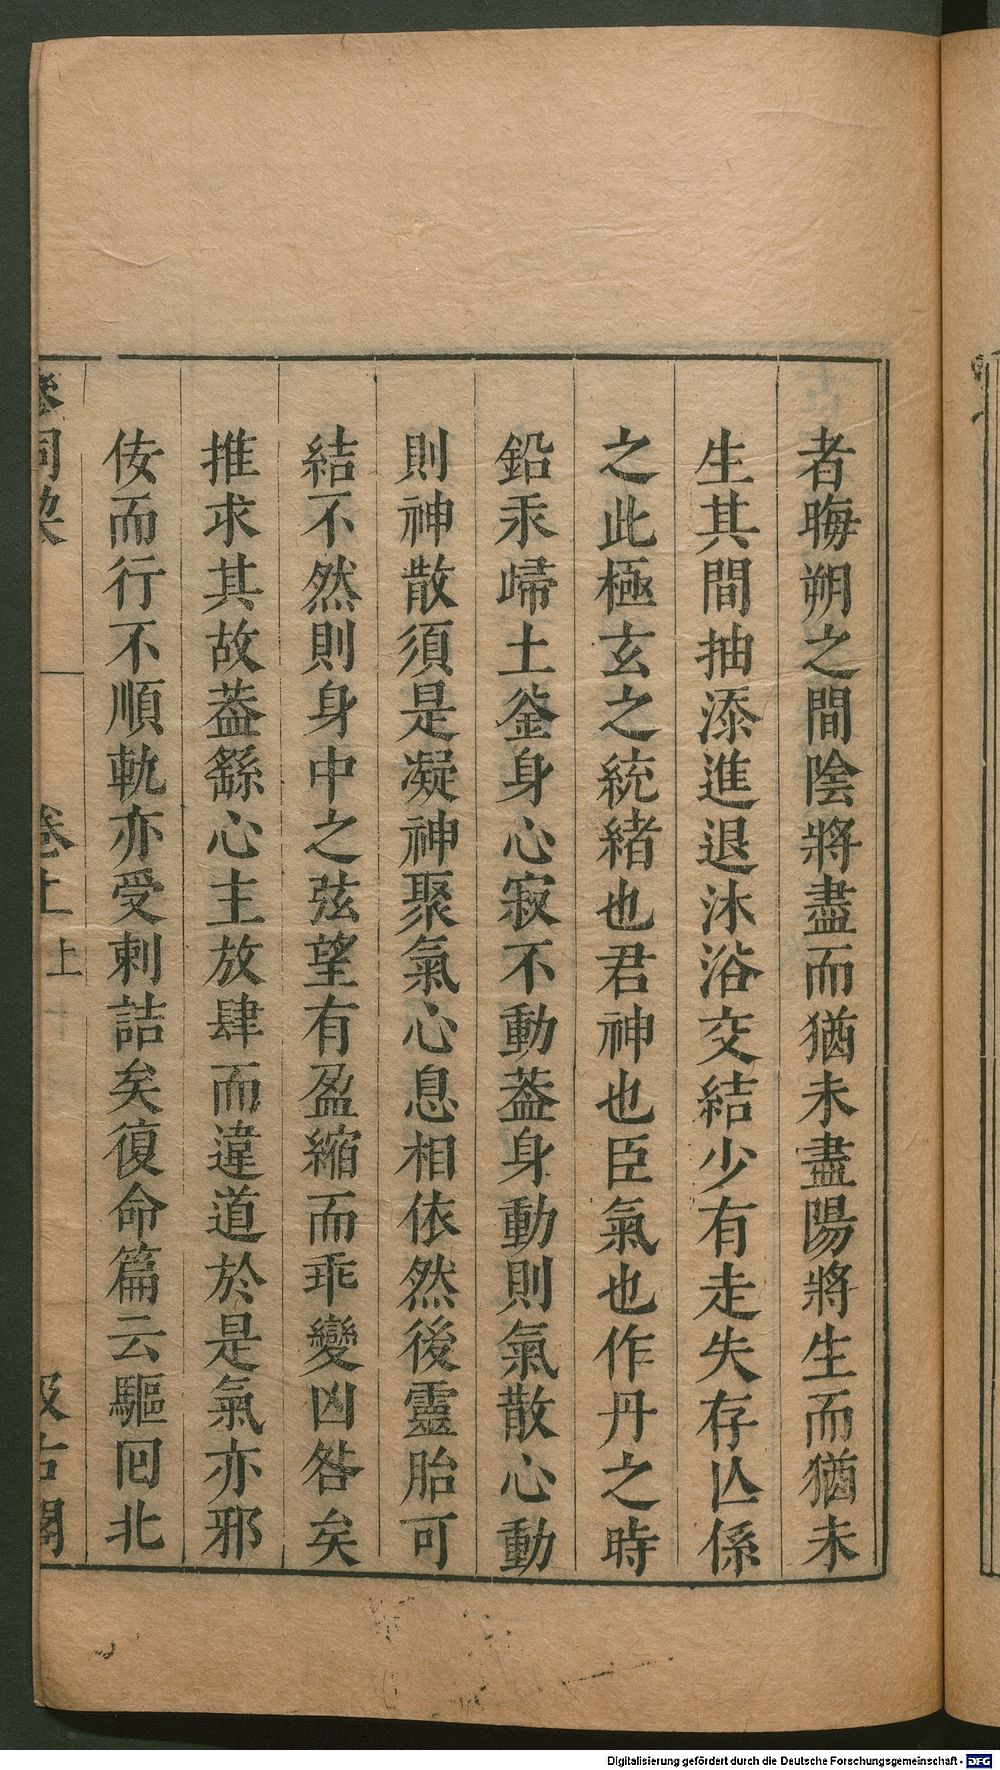 者晦朔之間陰將盡而猶未盡陽將生而猶未
生其間抽添進退沐浴交結少有走失存亾係
之此極玄之統緒也君神也臣氣也作丹之時
鉛汞歸土釜身心寂不動葢身動則氣散心動
則神散須是凝神聚氣心息相依然後靈胎可
結不然則身中之弦望有盈縮而乖變凶咎矣
推求其故葢繇心主放肆而違道於是氣亦邪
佞而行不順軌亦受刺詰矣復命篇云驅回北
參同契
卷上
上
汲古閣
Digitalisierung gefördert durch die Deutsche Forschungsgemeinschaft - DFG